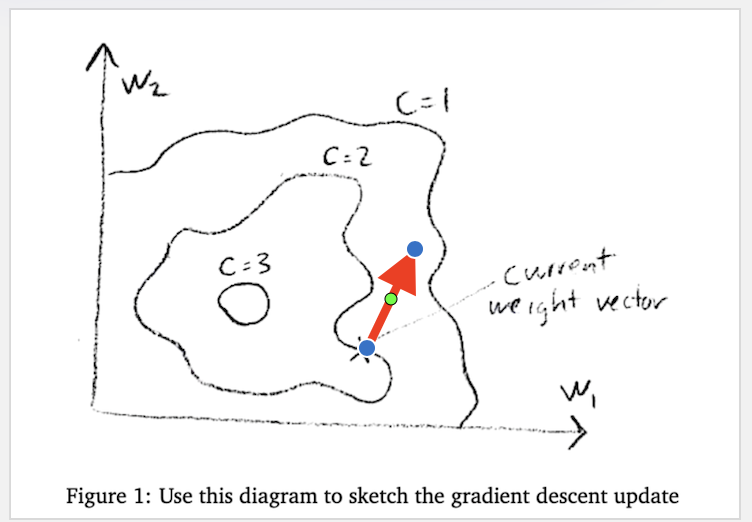 W₂
C=1
C=2
C=3
current
weight vector
W₁
Figure 1: Use this diagram to sketch the gradient descent update